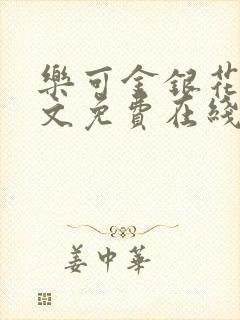 樂可金銀花
文免費在綫
姜中華